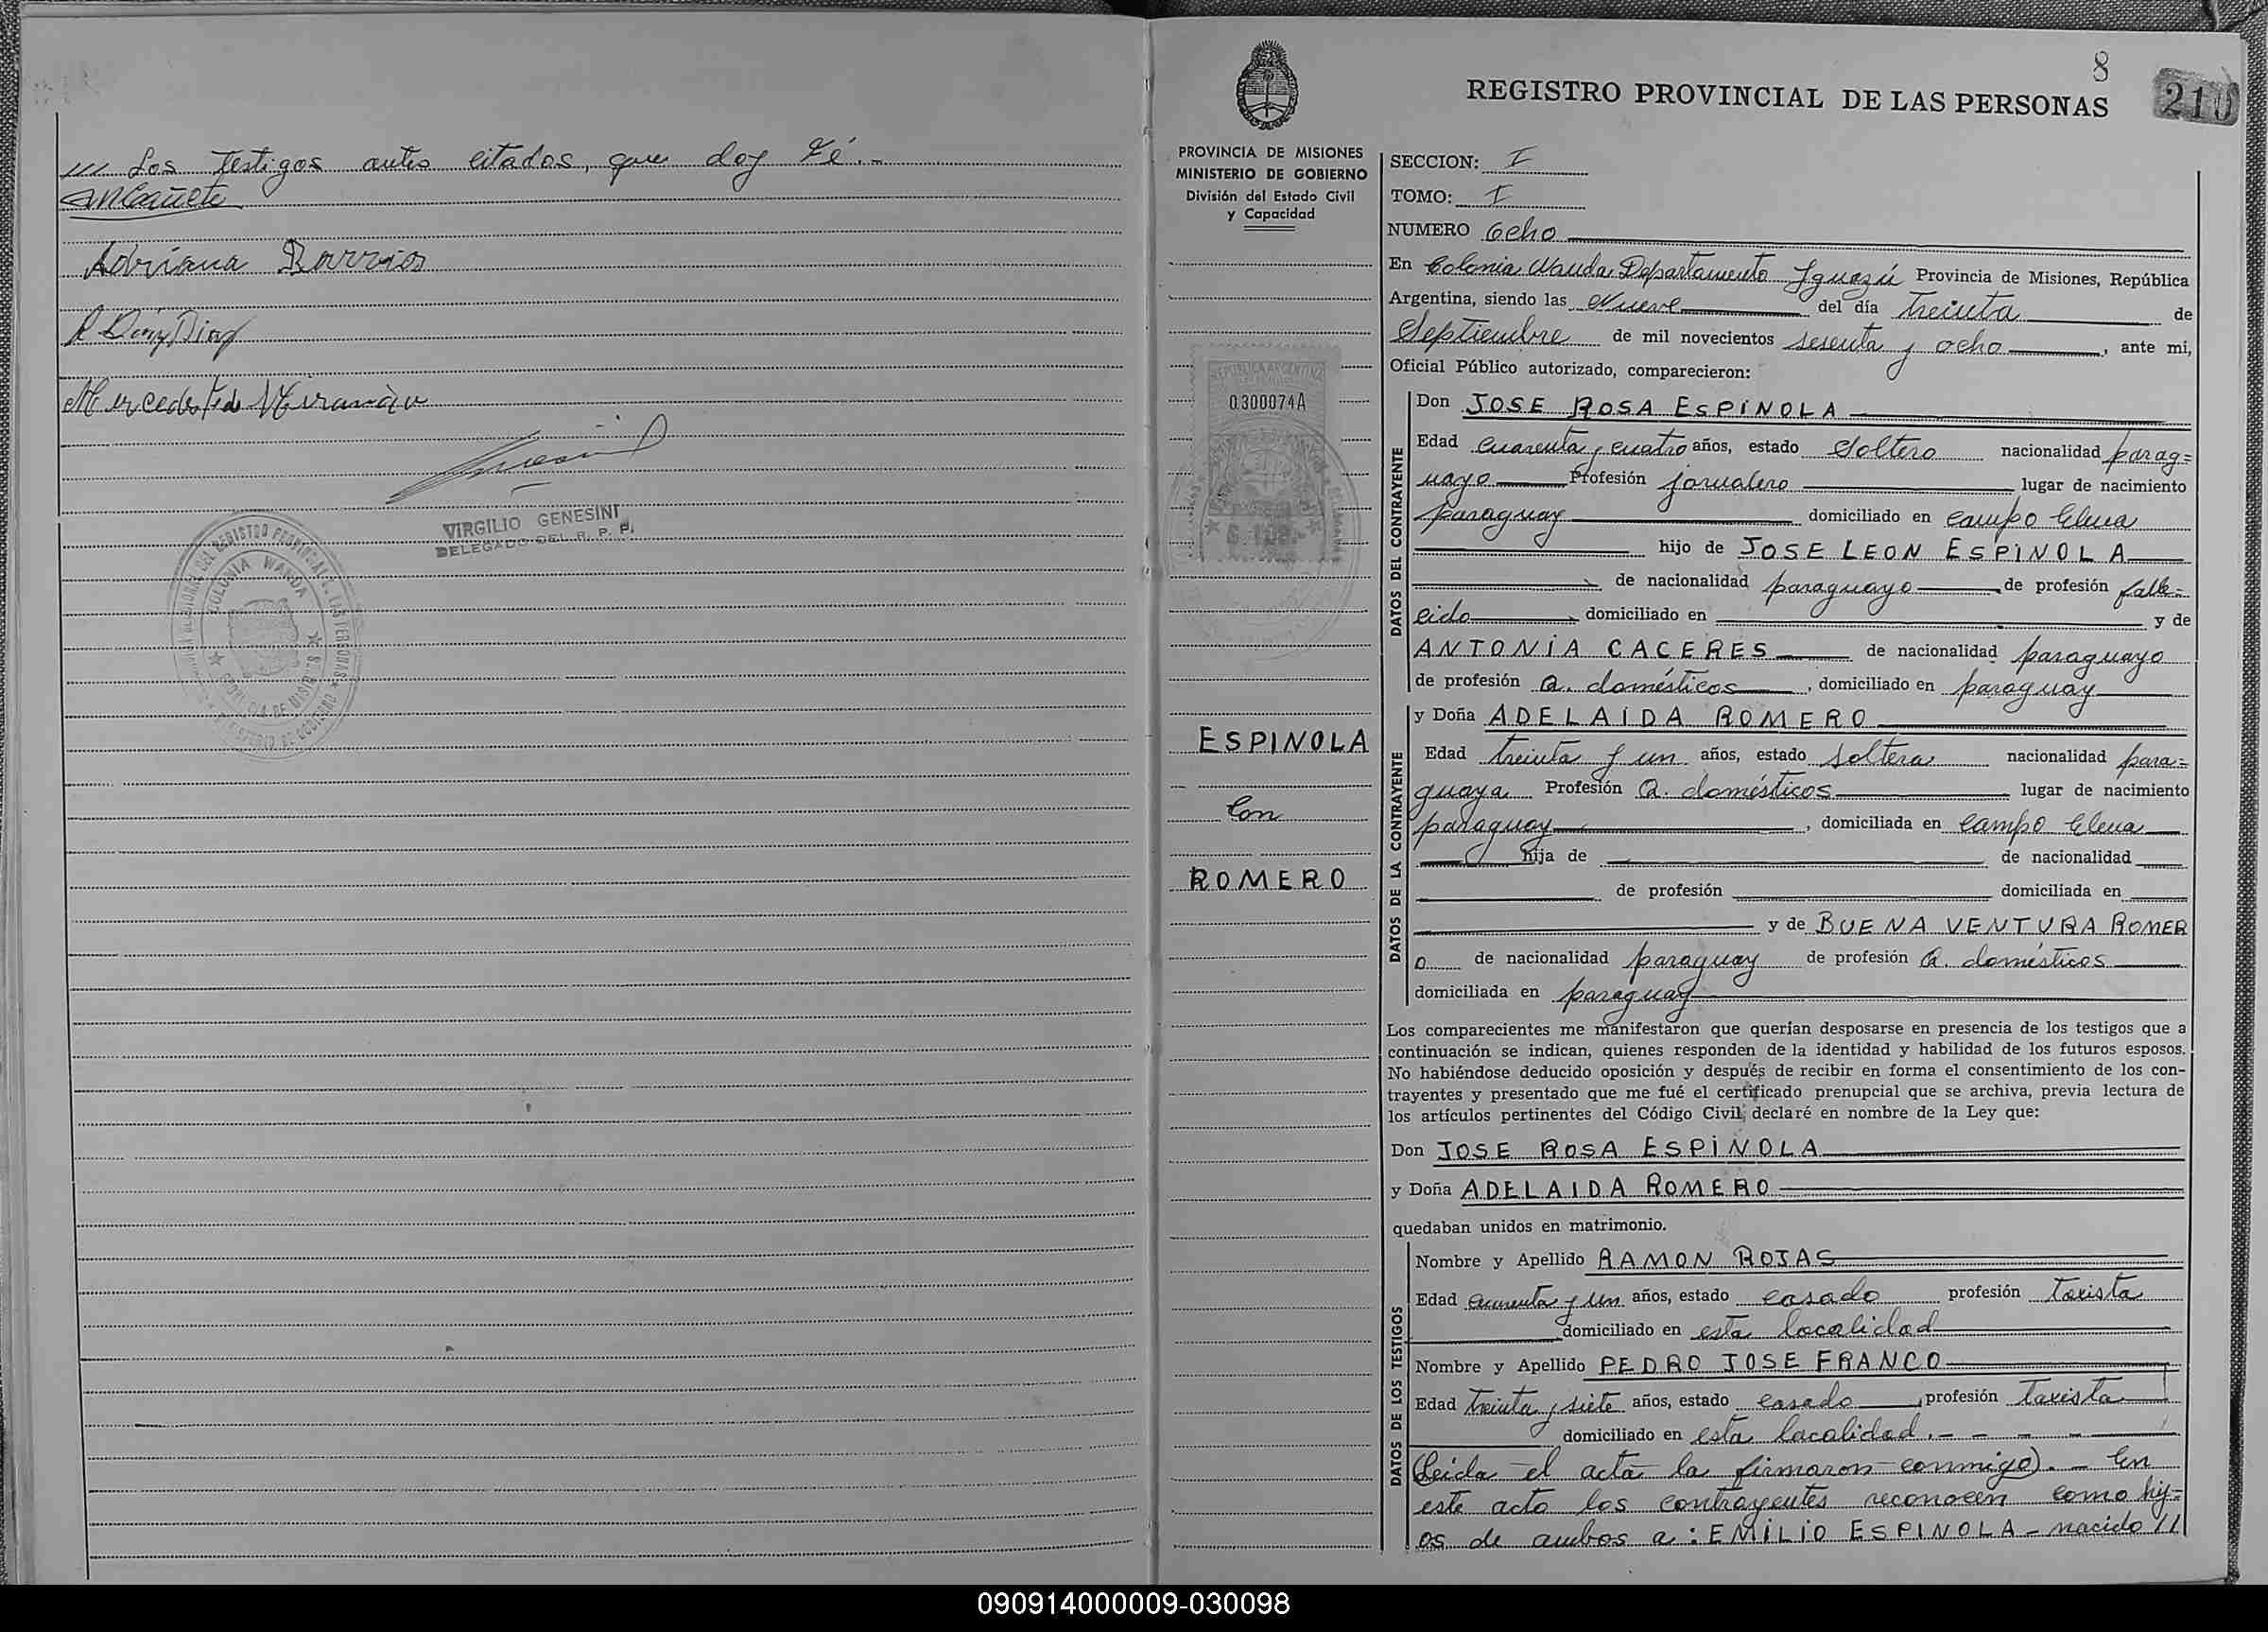 /// Los Testigos antes citados, que doy Fé.-
Adriana Barrios
Mercedes
VIRGILIO GENESINI
DELEGADO DEL R. P. P.
COLONIA WANDA
8
210
REGISTRO PROVINCIAL DE LAS PERSONAS
PROVINCIA DE MISIONES
MINISTERIO DE GOBIERNO
División del Estado Civil
y Capacidad
REPUBLICA ARGENTINA
0.300074A
ESPINOLA
Con
ROMERO
SECCION: I
TOMO: I
NUMERO Ocho
En Colonia Wanda Departamento Iguazú Provincia de Misiones, República
Argentina, siendo las Nueve del día treinta de
Septiembre de mil novecientos sesenta y ocho, ante mí,
Oficial Público autorizado, comparecieron:
DATOS DEL CONTRAYENTE
Don JOSE ROSA ESPINOLA
Edad Cuarenta y cuatro años, estado Soltero nacionalidad parag=
uayo Profesión jornalero lugar de nacimiento
paraguay domiciliado en campo Elena
hijo de JOSE LEON ESPINOLA
de nacionalidad paraguayo de profesión falle=
cido domiciliado en y de
ANTONIA CACERES de nacionalidad paraguayo
de profesión Q. domésticos, domiciliado en paraguay
DATOS DE LA CONTRAYENTE
y Doña ADELAIDA ROMERO
Edad treinta y un años, estado Soltera nacionalidad para=
guaya Profesión Q. domésticos lugar de nacimiento
paraguay, domiciliada en campo Elena
hija de de nacionalidad
de profesión domiciliada en
y de BUENA VENTURA ROMER
O de nacionalidad paraguay de profesión Q. domésticos
domiciliada en paraguay
Los comparecientes me manifestaron que querían desposarse en presencia de los testigos que a
continuación se indican, quienes responden de la identidad y habilidad de los futuros esposos.
No habiéndose deducido oposición y después de recibir en forma el consentimiento de los con-
trayentes y presentado que me fué el certificado prenupcial que se archiva, previa lectura de
los artículos pertinentes del Código Civil, declaré en nombre de la Ley que:
Don JOSE ROSA ESPINOLA
y Doña ADELAIDA ROMERO
quedaban unidos en matrimonio.
DATOS DE LOS TESTIGOS
Nombre y Apellido RAMON ROJAS
Edad cuarenta y un años, estado casado profesión Taxista
domiciliado en esta localidad
Nombre y Apellido PEDRO JOSE FRANCO
Edad treinta y siete años, estado casado, profesión Taxista
domiciliado en esta localidad.- - - - -
(Leida el acta la firmaron conmigo).- En
este acto los contrayentes reconocen como hij=
os de ambos a: EMILIO ESPINOLA - nacido //
090914000009-030098